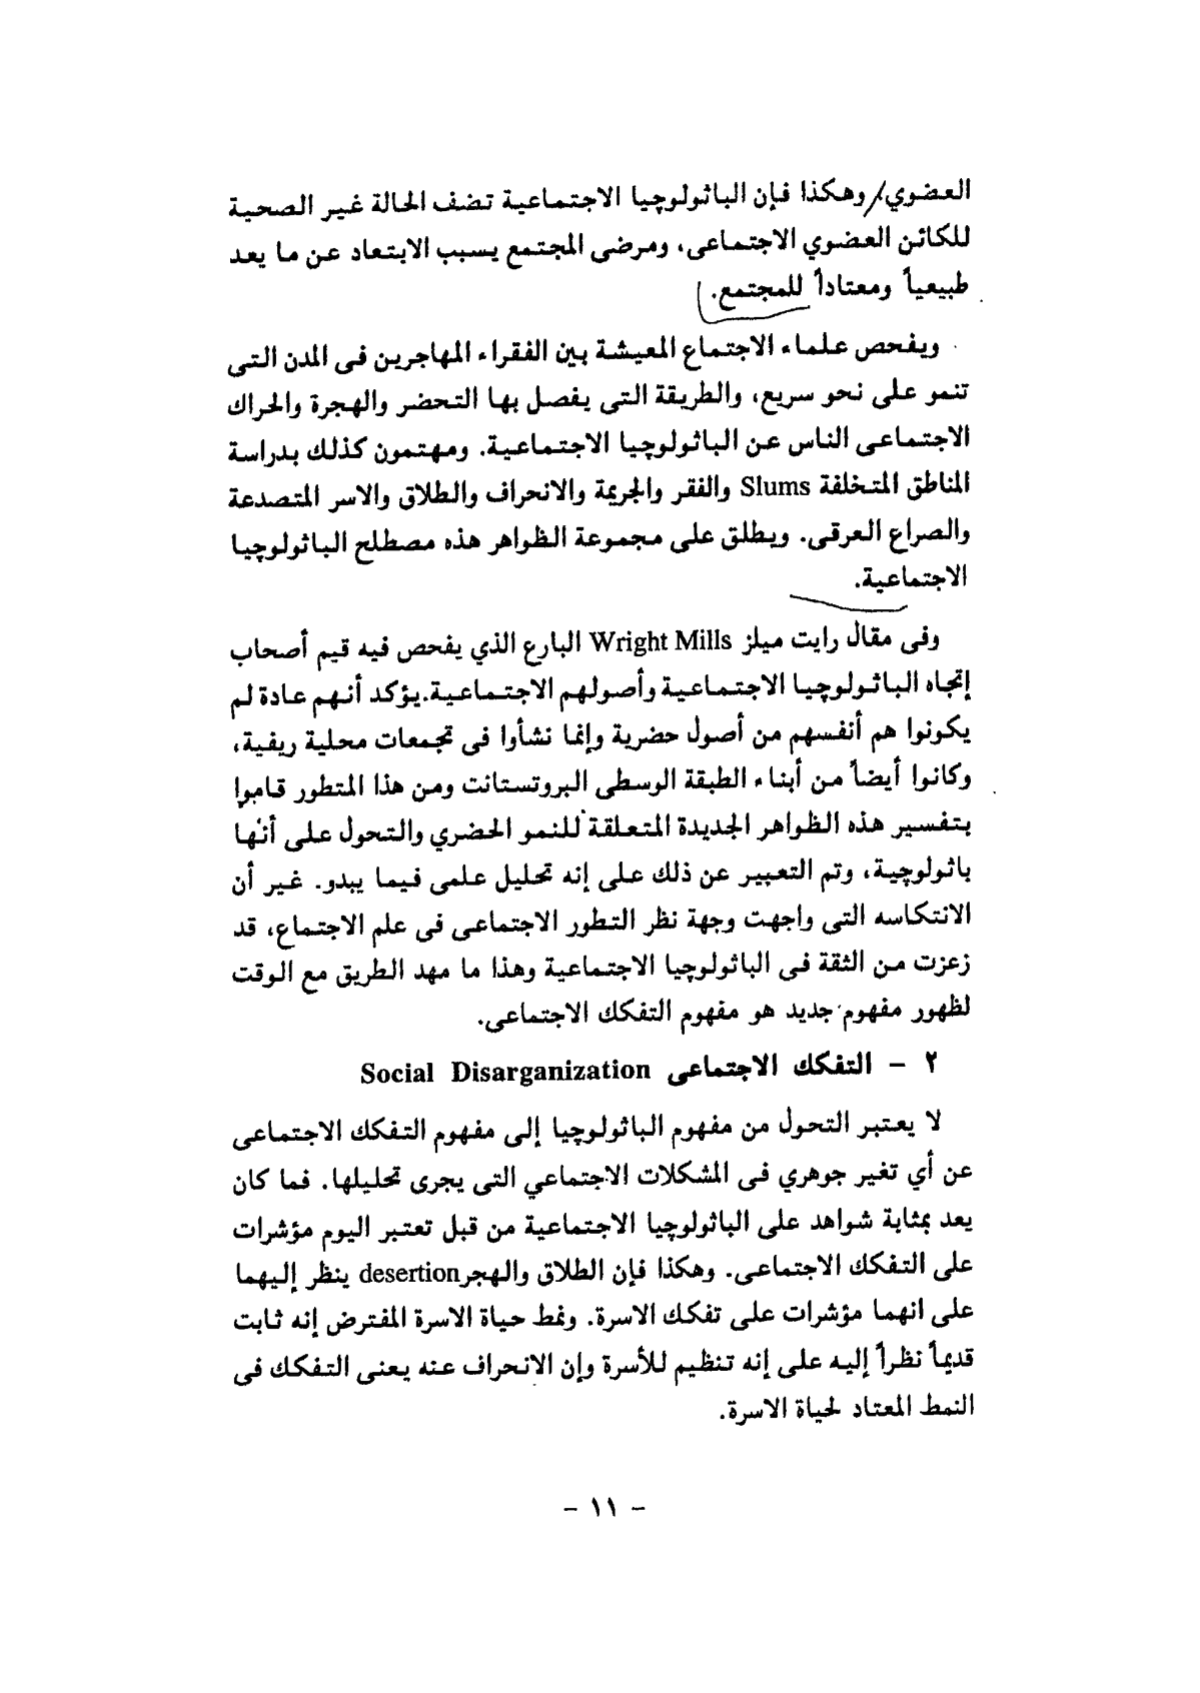 العضوي/وهكذا فإن الباثولوچيا الاجتماعية تضف الحالة غير الصحية
للكائن العضوي الاجتماعى، ومرضى المجتمع يسبب الابتعاد عن ما يعد
طبيعياً ومعتاداً للمجتمع.
ويفحص علماء الاجتماع المعيشة بين الفقراء المهاجرين فى المدن التى
تنمو على نحو سريع، والطريقة التى يفصل بها التحضر والهجرة والحراك
الاجتماعى الناس عن الباثولوچيا الاجتماعية. ومهتمون كذلك بدراسة
المناطق المتخلفة Slums والفقر والجريمة والانحراف والطلاق والاسر المتصدعة
والصراع العرقى. ويطلق على مجموعة الظواهر هذه مصطلح الباثولوچيا
الاجتماعية.
وفى مقال رايت ميلز Wright Mills البارع الذي يفحص فيه قيم أصحاب
إتجاه الباثولوچيا الاجتماعية وأصولهم الاجتماعية.يؤكد أنهم عادة لم
يكونوا هم أنفسهم من أصول حضرية وإنما نشأوا فى تجمعات محلية ريفية،
وكانوا أيضاً من أبناء الطبقة الوسطى البروتستانت ومن هذا المتطور قاموا
بتفسير هذه الظواهر الجديدة المتعلقة للنمو الحضري والتحول على أنها
باثولوچية، وتم التعبير عن ذلك على إنه تحليل علمى فيما يبدو. غير أن
الانتكاسه التى واجهت وجهة نظر التطور الاجتماعى فى علم الاجتماع، قد
زعزت من الثقة فى الباثولوچيا الاجتماعية وهذا ما مهد الطريق مع الوقت
لظهور مفهوم جديد هو مفهوم التفكك الاجتماعى.
٢ - التفكك الاجتماعى Social Disarganization
لا يعتبر التحول من مفهوم الباثولوچيا إلى مفهوم التفكك الاجتماعى
عن أي تغير جوهري فى المشكلات الاجتماعي التى يجرى تحليلها. فما كان
يعد بمثابة شواهد على الباثولوچيا الاجتماعية من قبل تعتبر اليوم مؤشرات
على التفكك الاجتماعى. وهكذا فإن الطلاق والهجرdesertion ينظر إليهما
على انهما مؤشرات على تفكك الاسرة. ونمط حياة الاسرة المفترض إنه ثابت
قديماً نظراً إليه على إنه تنظيم للأسرة وإن الانحراف عنه يعنى التفكك فى
النمط المعتاد لحياة الاسرة.
- ١١ -